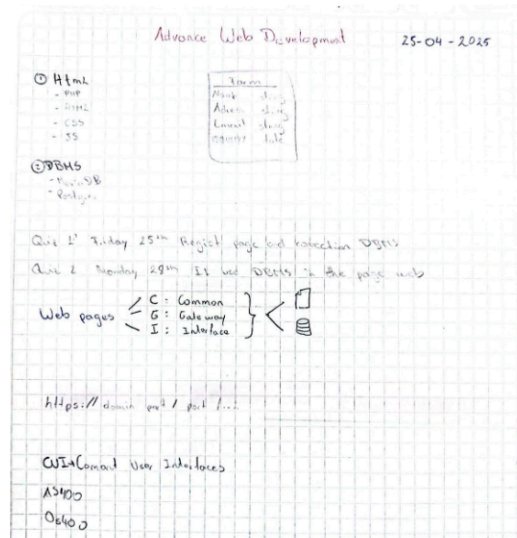 Advance Web Development 25-04-2025
① Html
- PHP
- HTML
- CSS
- JS
Form
Name string
Adress string
Email string
date
② DBMS
- MariaDB
- Postgres
Quiz 1' Friday 25th Regist page and conection DBMS
Quiz 2 Monday 28th It use DBMS in the page web
Web pages
C : Common
G : Gateway
I : Interface
https:// domain port / port /...
CUI→Comand User Interfaces
AS400
OS400